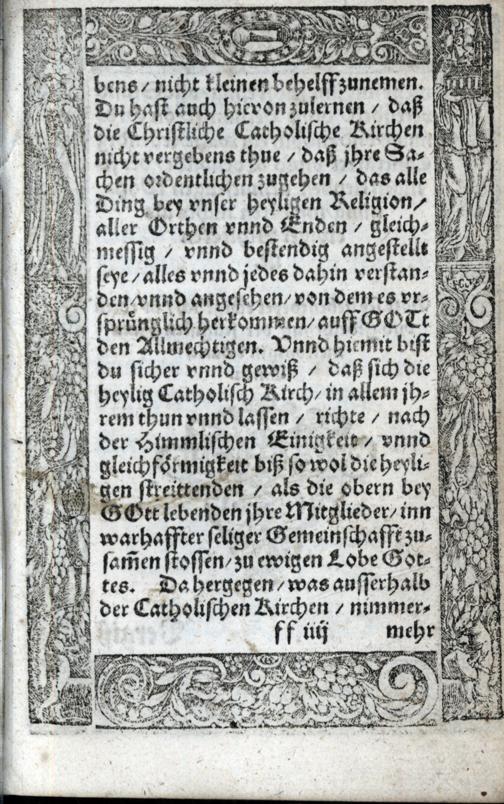 bens / nicht kleinen behelff zunemen.
Du hast auch hieron zulernen / daß
die Christliche Catholische Kirchen
nicht vergebens thue / daß jhre Sa-
chen ordentlichen zugehen / das alle
Ding bey vnser heyligen Religion /
aller Orthen vnnd Enden / gleich-
messig / vnnd bestendig angestellt
seye / alles vnnd jedes dahin verstan-
den / vnnd angesehen / von dem es vr-
sprünglich herkommen / auff GOTt
den Allmechtigen. Vnnd hiemit bist
du sicher vnnd gewiß / daß sich die
heylig Catholisch Kirch / in allem jh-
rem thun vnnd lassen / richte / nach
der Himmlischen Einigkeit / vnnd
gleichförmigkeit biß so wol die heyli-
gen streittenden / als die obern bey
GOtt lebenden jhre Mitglieder / inn
warhaffter seliger Gemeinschafft zu-
sam̃en stossen / zu ewigen Lobe Got-
tes. Da hergegen / was ausserhalb
der Catholischen Kirchen / nimmer-
ff iiij mehr